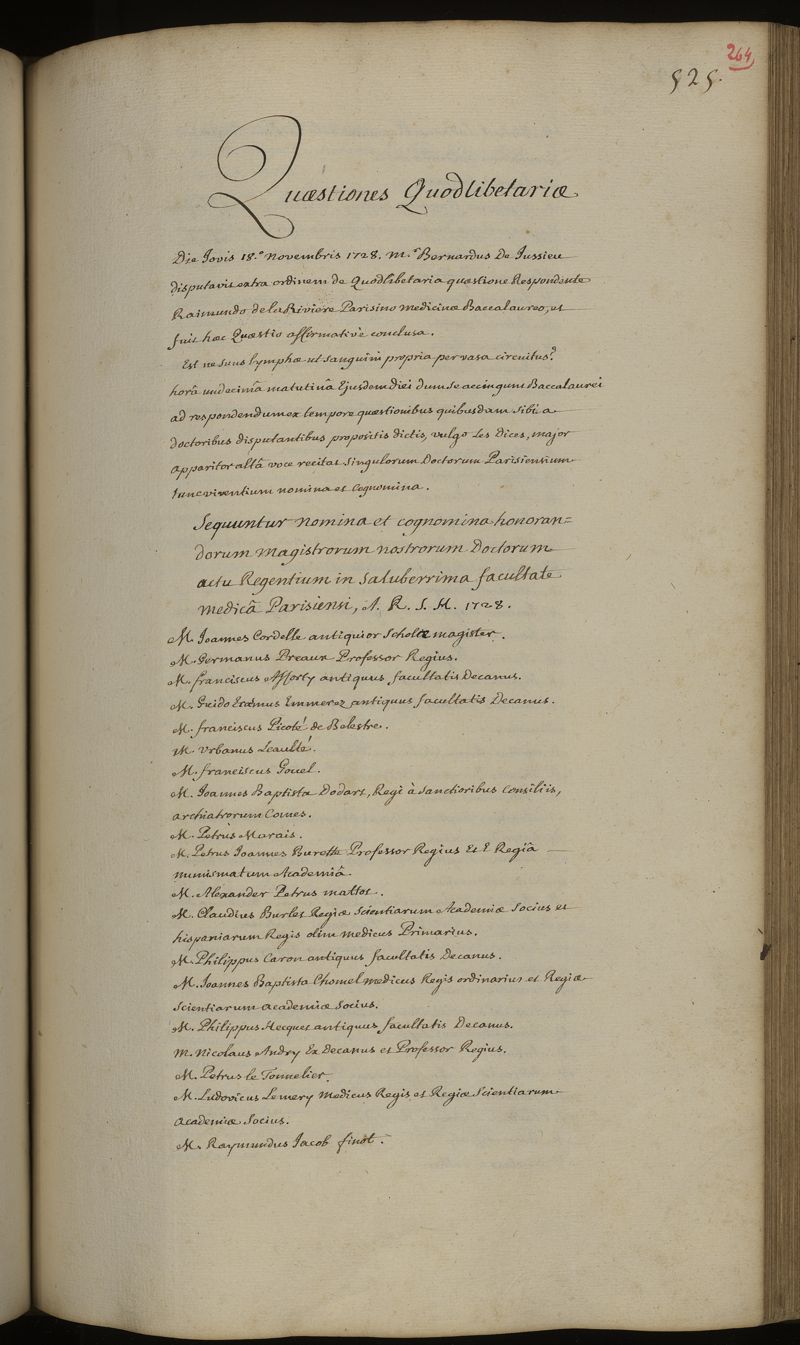 264
525.
Quæstiones Quodlibetariæ
Die Jovis 18.° Novembris 1728. M.r Bernardus De Jussieu
disputavit extra ordinem de Quodlibetaria quæstione Respondente
Raimundo de la Riviere Parisino medicinæ Baccalaureo, et
fuit hæc Quæstio affirmativè conclusa.
Est ne suus lymphæ ut sanguini proprius per vasa circuitus?
horâ undecimâ matutinâ Ejusdem diei dum se accingunt Baccalaurei
ad respondendum ex tempore quæstionibus quibusdam sibi a
doctoribus disputantibus propositis dictis, vulgo Les Dices, major
apparitor altâ voce recitat singulorum Doctorum Parisiensium
tunc viventium nomina et Cognomina.
Sequuntur nomina et cognomina honoran=
dorum magistrorum nostrorum Doctorum
actu Regentium in saluberrima facultate
medicâ Parisiensi, A. R. S. H. 1728.
M. Joannes Cordelle antiquior Scholæ magister.
M. Germanus Preaux Professor Regius.
M. franciscus Afforty antiquus facultatis Decanus.
M. Guido Erasmus Emmerez antiquus facultatis Decanus.
M. franciscus Picoté de Belestre.
M. Urbanus Leaulté.
M. franciscus Gouel.
M. Joannes Baptista Dodart, Regi à Sanctioribus Consiliis,
archiatrorum Comes.
M. Petrus Marais.
M. Petrus Joannes Burette Professor Regius Et È Regiâ
numismatum Academiâ.
M. Alexander Petrus mattot.
M. Claudius Burlet Regiæ Scientiarum Academiæ Socius et
hispaniarum Regis olim medicus Primarius.
M. Philippus Caron antiquus facultatis Decanus.
M. Joannes Baptista Chomel medicus Regis ordinarius et Regiæ
Scientiarum academiæ Socius.
M. Philippus Hecquet antiquus facultatis Decanus.
M. Nicolaus Andry Ex Decanus et Professor Regius.
M. Petrus le Tonnelier.
M. Ludovicus Lemery Medicus Regis et Regiæ Scientiarum
academiæ Socius.
M. Raymundus Jacob finot.